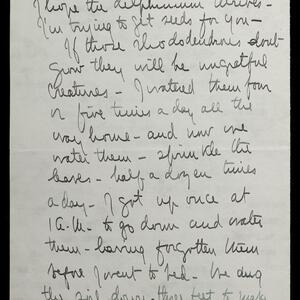 I hope the delphinium arrives -
I'm trying to get seeds for you -
If those rhododendrons don't
grow they will be ungrateful
creatures - I watered them four
or five times a day all the
way home - and now we
water them - sprinkle the
leaves - half a dozen times
a day - I got up once at
1 A.M. to go down and water
them - having forgotten them
before I went to bed - We dug
the down - three feet to make